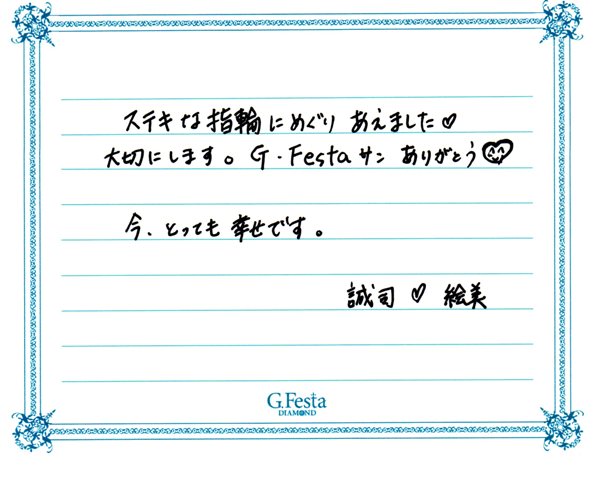 ステキな指輪にめぐりあえました♡
大切にします。G・Festaサン ありがとう♡
今、とっても幸せです。
誠司 ♡ 絵美
G.Festa
DIAMOND